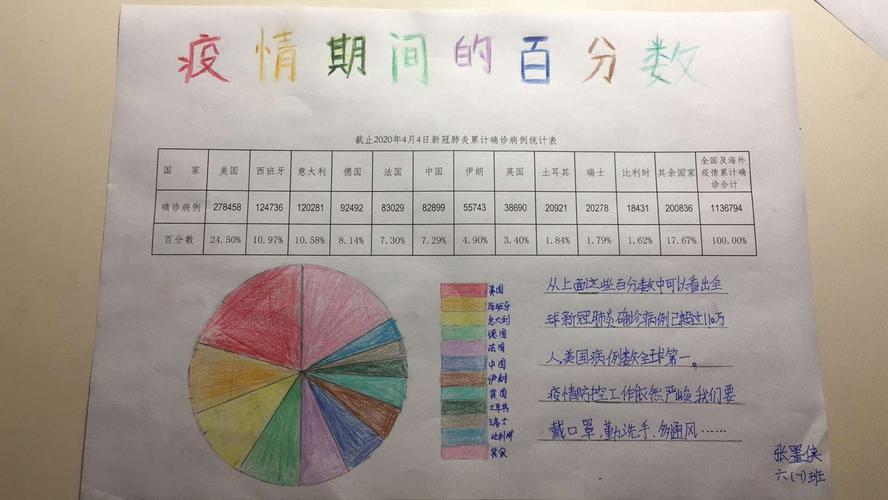 疫情期间的百分数
截止2020年4月4日新冠肺炎累计确诊病例统计表
国 家 美国 西班牙 意大利 德国 法国 中国 伊朗 英国 土耳其 瑞士 比利时 其余国家 全国及海外疫情累计确诊合计
确诊病例 278458 124736 120281 92492 83029 82899 55743 38690 20921 20278 18431 200836 1136794
百分数 24.50% 10.97% 10.58% 8.14% 7.30% 7.29% 4.90% 3.40% 1.84% 1.79% 1.62% 17.67% 100.00%
美国
西班牙
意大利
德国
法国
中国
伊朗
英国
土耳其
瑞士
比利时
其余
从上面这些百分数中可以看出全
球新冠肺炎确诊病例已超过110万
人,美国病例数全球第一。
疫情防控工作依然严峻,我们要
戴口罩,勤洗手、多通风……
张墨侠
六(7)班